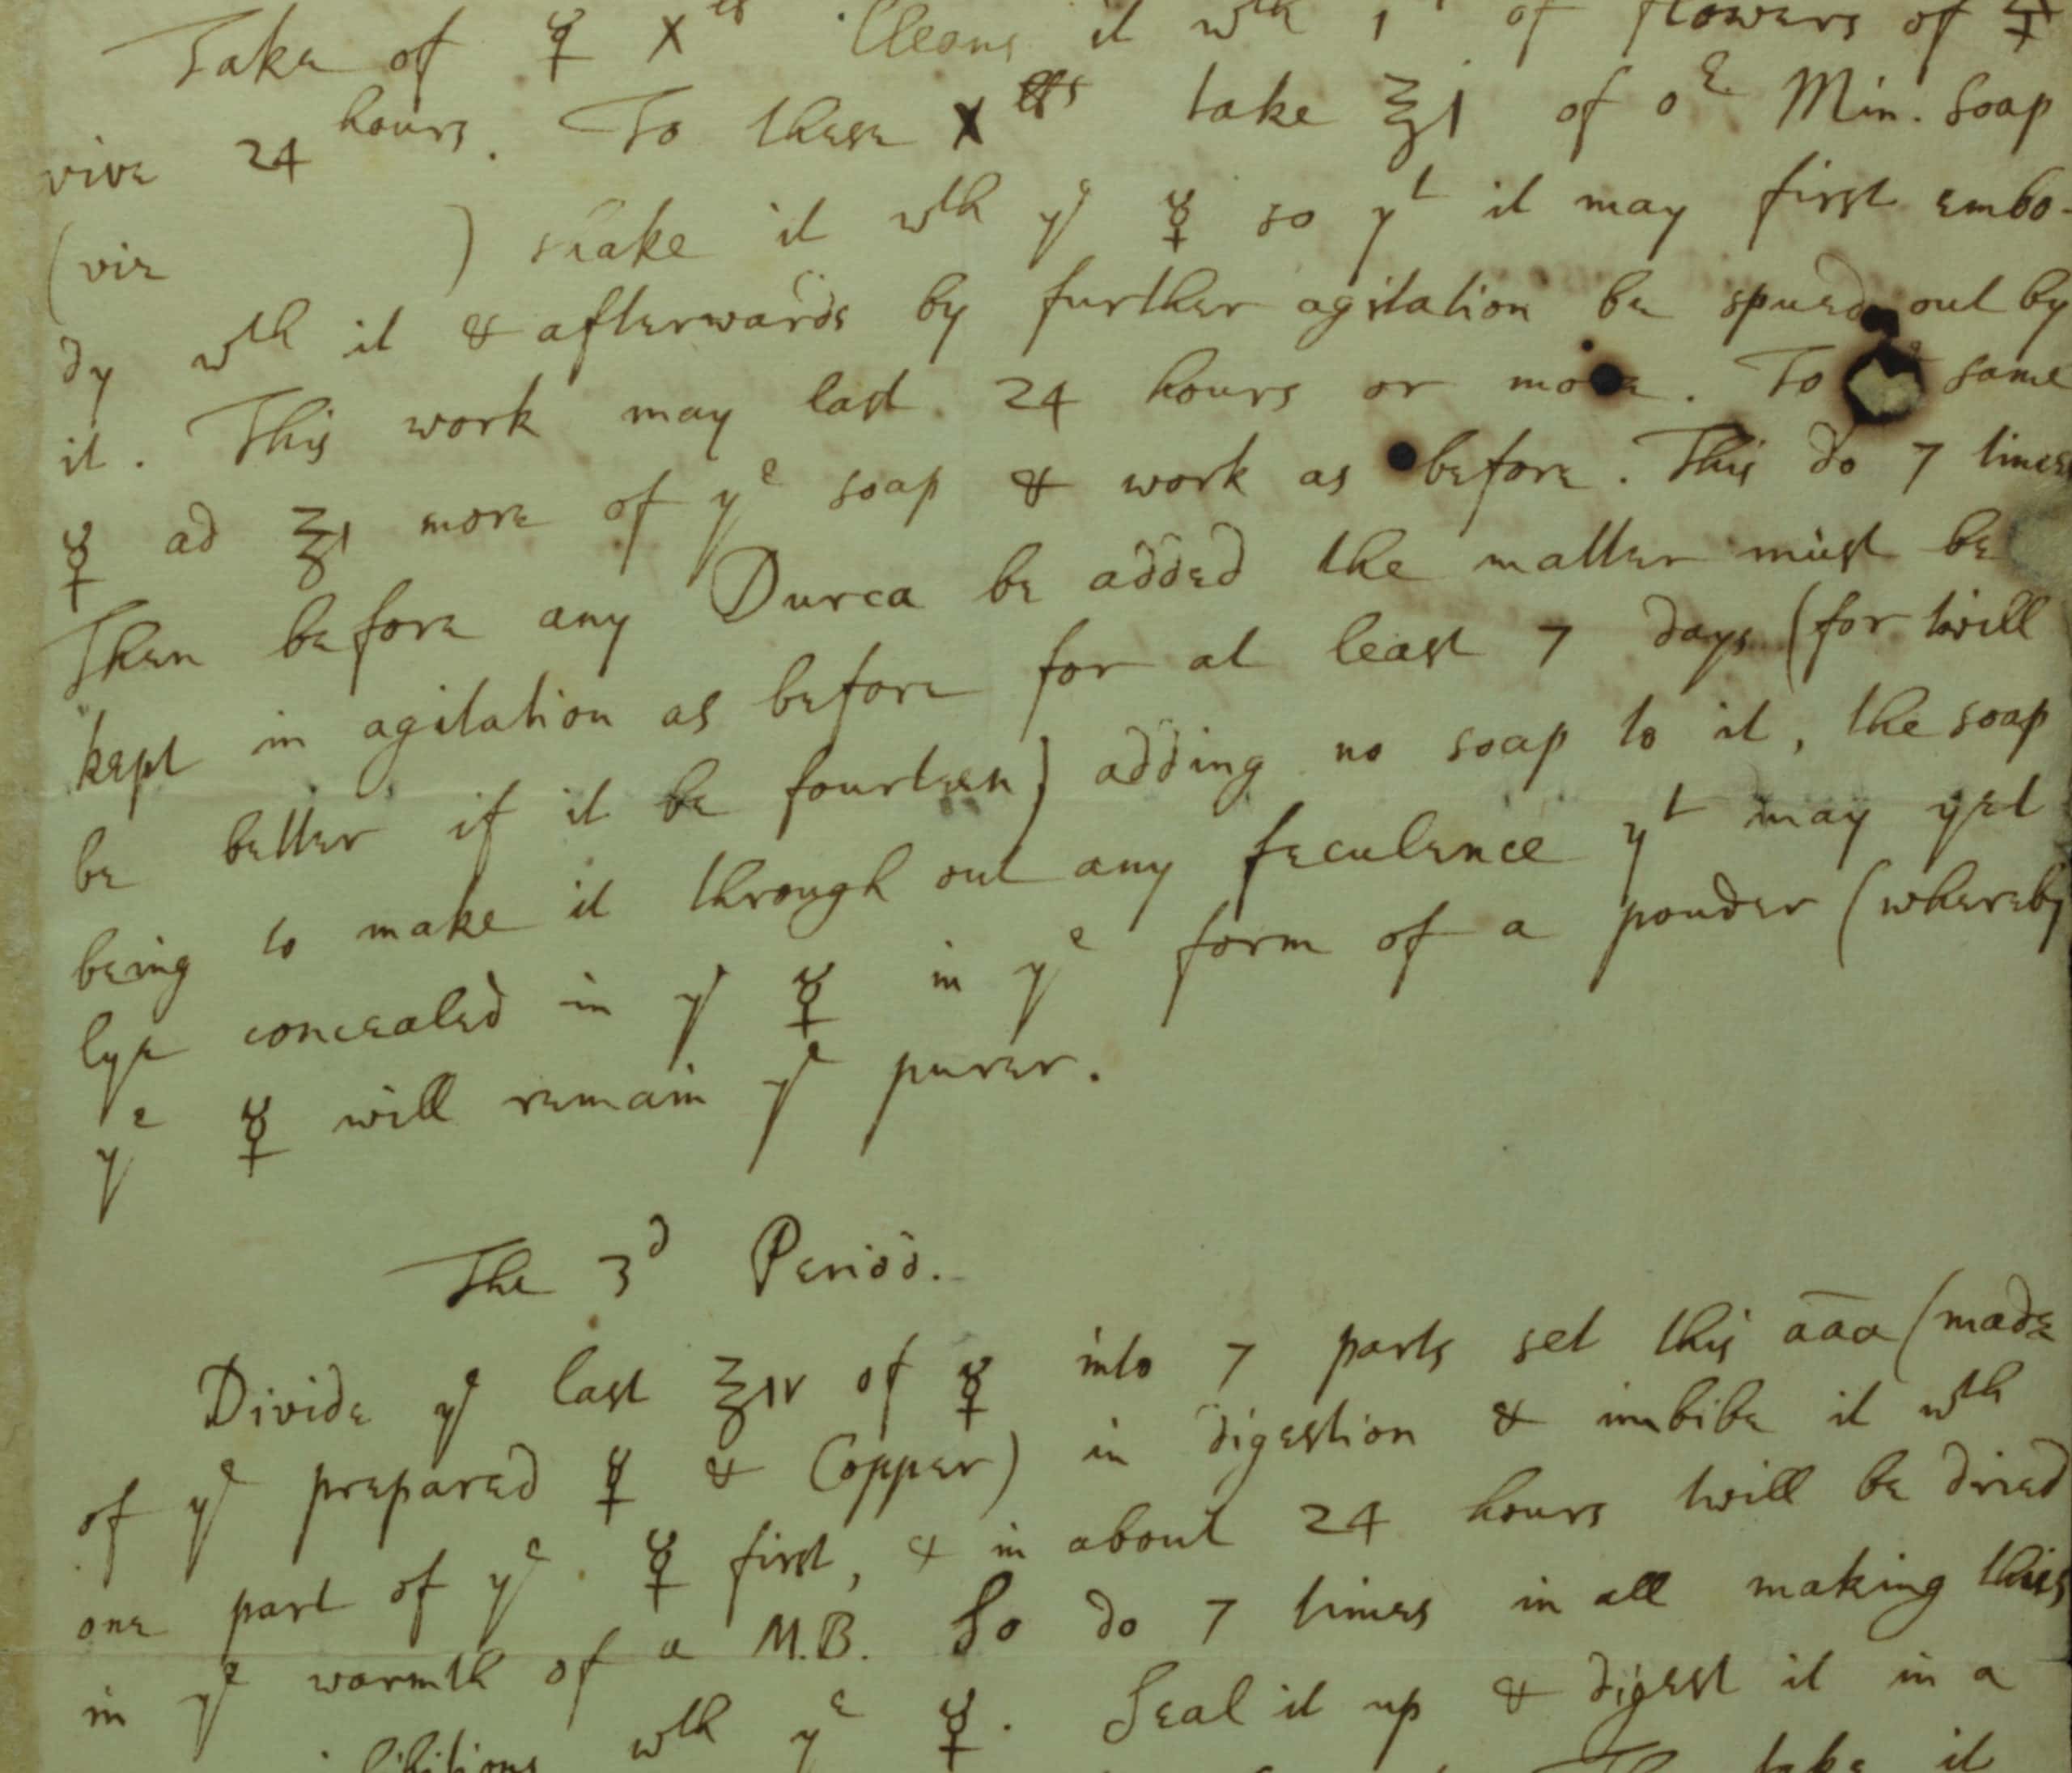 Take of ☿ X Cleans it wth 1 of flowers of
vive 24 hours. To these X take ℥1 of oe Min. Soap
(vir ) shake it wth ye ☿ so yt it may first embo-
dy wth it & afterwards by further agitation be spued out by
it. This work may last 24 hours or more. To same
☿ ad ℥1 more of ye soap & work as before. This do 7 times
Then before any Durca be added the matter must be
kept in agitation as before for at least 7 days (for twill
be better if it be fourteen) adding no soap to it, the soap
being to make it through out any feculence yt may yet
lye concealed in ye ☿ in ye form of a pouder (whereby
ye ☿ will remain ye purer.
The 3d Period.
Divide ye last ℥IV of ☿ into 7 parts set this āāa (made
of ye prepared ☿ & Copper) in digestion & imbibe it wth
one part of ye ☿ first, & in about 24 hours twill be dried
in ye warmth of a M.B. So do 7 times in all making this
wth ye ☿. Seal it up & digest it in a
take it